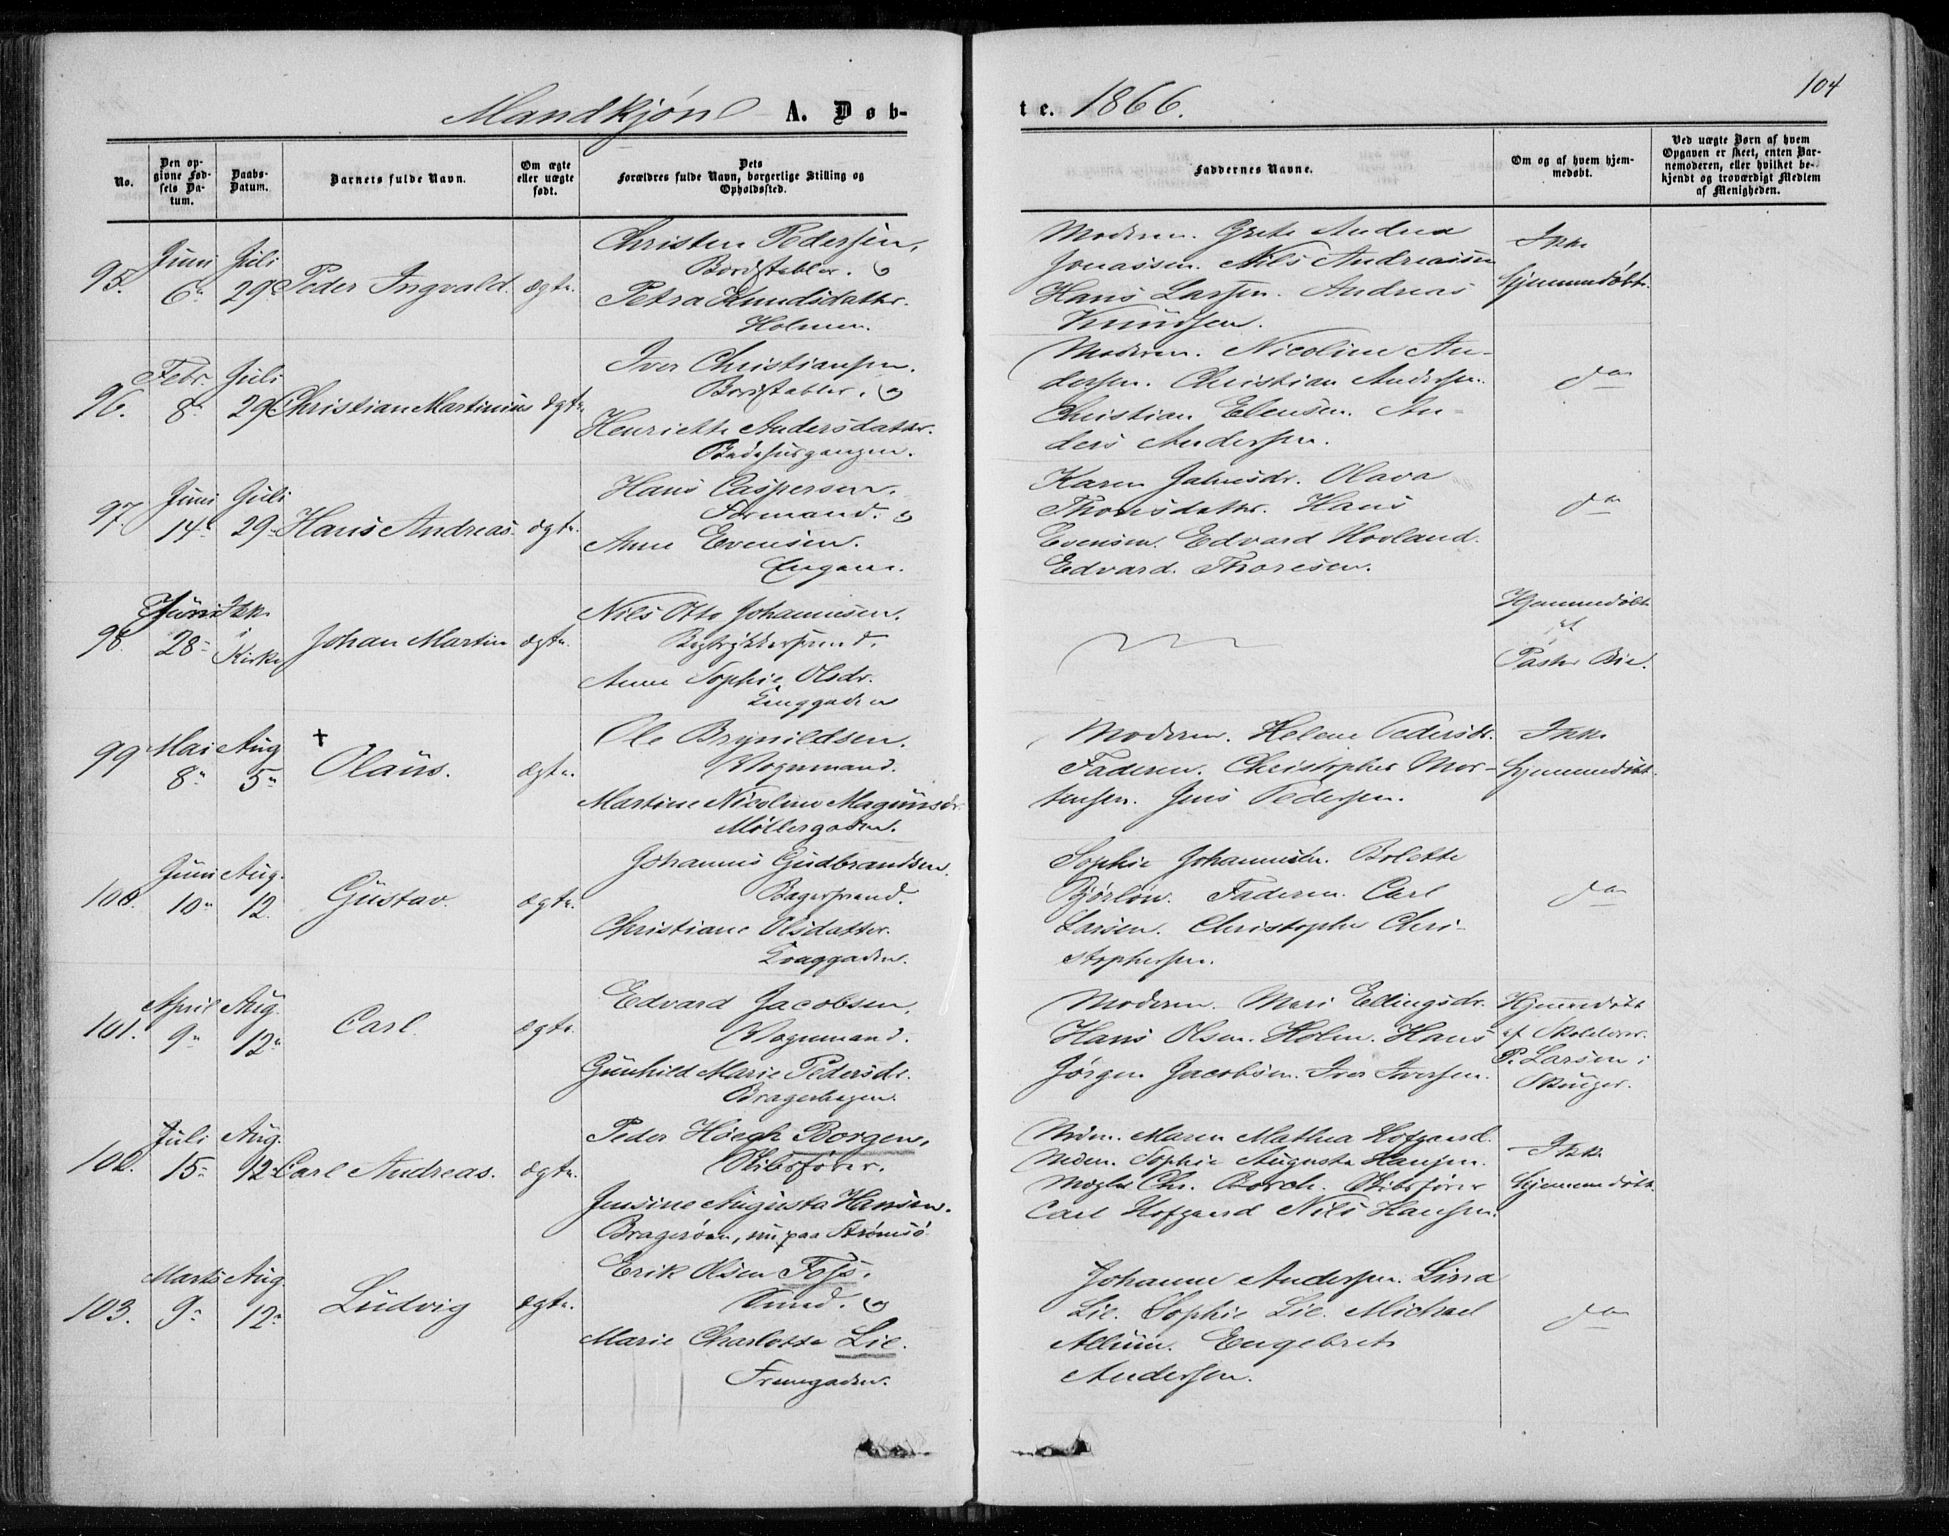 104
Mandkjøn A. Døb-
te. 1866.
No.
Den op-
givne Fød-
sels Da-
tum.
Daabs-
Datum.
Barnets fulde Navn.
Om ægte
eller uægte
født.
Dets
Forældres fulde Navn, borgerlige Stilling og
Opholdssted.
Faddernes Navne.
Om og af hvem hjem-
medøbt.
Ved uægte Børn af hvem
Opgaven er skeet, enten Bar-
nemoderen, eller hvilket be-
kjendt og troværdigt Medlem
af Menigheden.
95. Juni 6 Juli 29 Peder Ingvald. ægte.
Christen Pedersen,
Bordstabler. og
Petra Knudsdatter.
Holmen.
Moderen. Grete Andrea
Jonassen. Nils Andreassen
Hans Larsen. Andreas
Knudsen.
Ikke
hjemmedøbt.
96. Febr. 8 Juli 29 Christian Martinius ægte.
Iver Christiansen.
Bordstabler. og
Henriette Andersdatter.
Badehusgangen.
Moderen. Nicoline An-
dersen. Christian Andersen.
Christian Elensen. An-
ders Andersen.
do
97. Juni 14 Juli 29 Hans Andreas. ægte.
Hans Caspersen.
Formand. og
Anne Evensen.
Engene.
Karen Jahnsdr. Olava
Thorisdatter. Hans
Evensen. Edvard Hovland.
Edvard Thoresen.
do
98. Juni 28 Ikke i Kirke Johan Martin ægte.
Nils Otto Johannesen.
Bogtrykkersvend.
Anne Sophie Olsdr.
Tinggaden
Hjemmedøbt
af
Pastor Bie.
99 Mai 8 Aug 5 † Olaus. ægte.
Ole Brynildsen.
Vognmand.
Martine Nicoline Magnusdr.
Møllergaden.
Moderen. Helene Pedersdr.
Faderen. Christopher Mor-
tensen. Jens Pedersen.
Ikke
hjemmedøbt.
100. Juni 10 Aug. 12 Gustav. ægte.
Johannes Gudbrandsen.
Bagersvend.
Christiane Olsdatter.
Tinggaden.
Sophie Johannesen. Bolette
Bjørløw. Faderen. Carl
Larsen. Christopher Chri-
stophersen.
do
101. April 9 Aug. 12 Carl. ægte.
Edvard Jacobsen.
Vognmand.
Gunhild Marie Pedersdr.
Bragerhagen.
Moderen. Mari Ellingsdr.
Hans Olsen. Holm. Hans
Jørgen Jacobsen. Iver Iversen.
Hjemmedøbt
af Skolelærer
P. Larsen i
Skouger.
102. Juli 15 Aug. 12 Carl Andreas. ægte.
Peder Høegh Borgen,
Skibsfører.
Jensine Augusta Hansen.
Bragerøen, nu paa Strømsø
Maren Mathea Hofgaard.
Sophie Augusta Hansen.
Mægler Chr. Borch. Skibsfører
Carl Hofgaard Nils Hansen.
Ikke
hjemmedøbt.
103. Marts 9 Aug. 12 Ludvig ægte.
Erik Olsen Foss.
Smed. og
Marie Charlotte Lie.
Fremgaden.
Johanne Andersen. Lina
Lie. Sophie Lie. Michael
Allum. Engebret
Andersen.
do